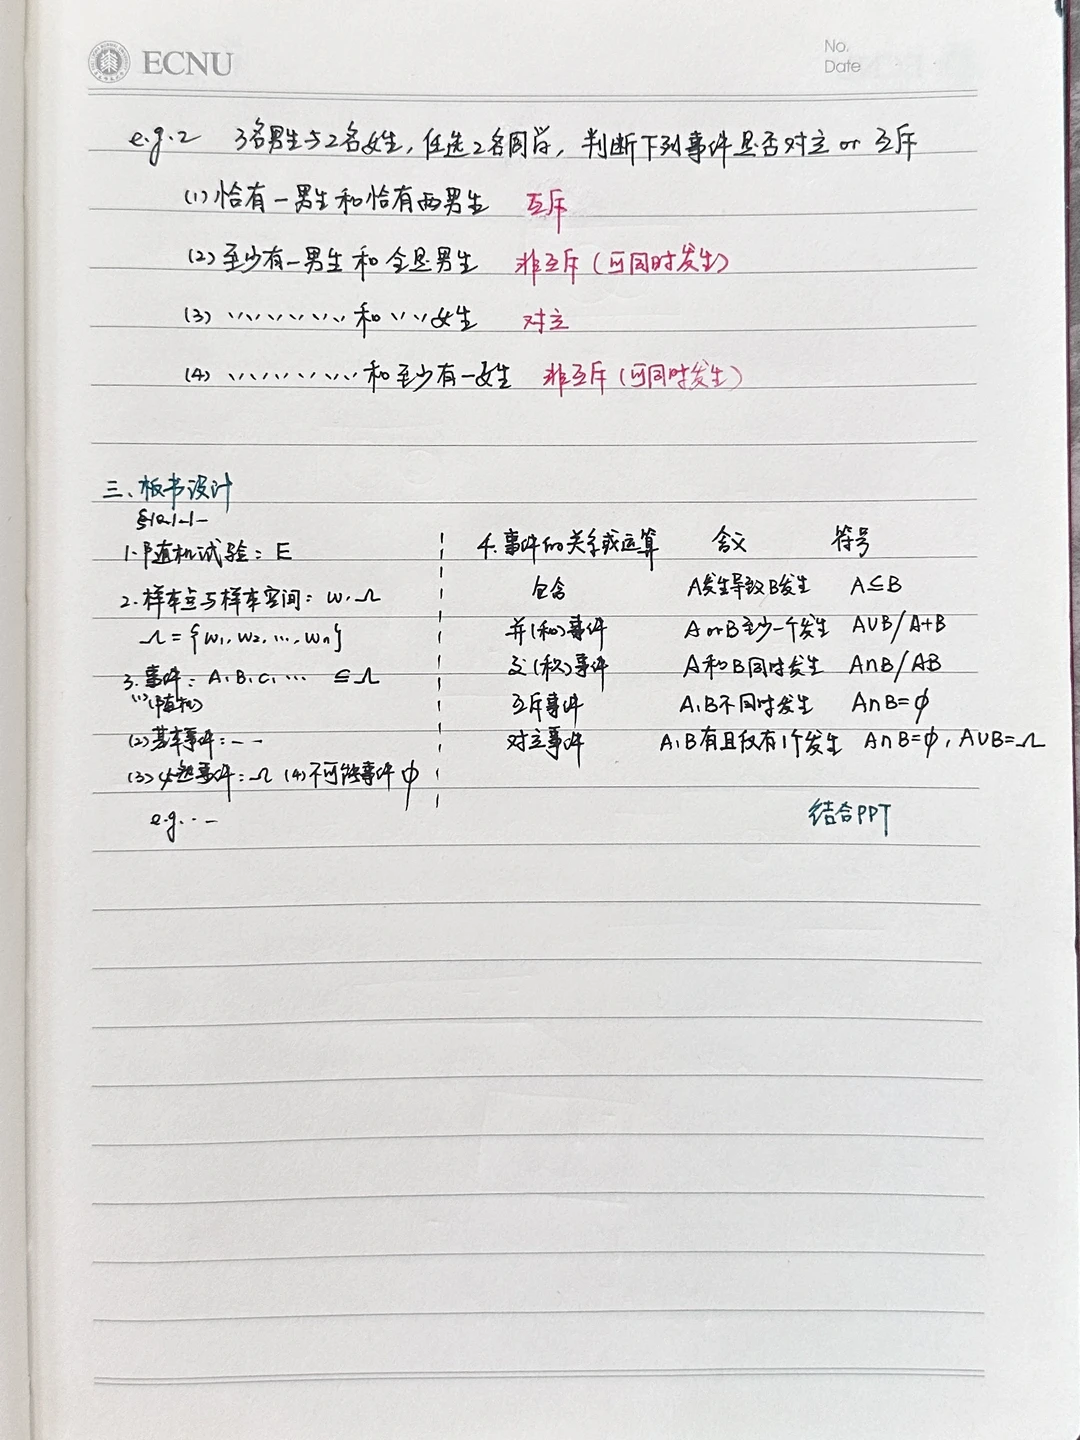 ECNU
No.
Date
e.g.2 3名男生与2名女生,任选2名同学,判断下列事件是否对立 or 互斥
(1)恰有一男生和恰有两男生 互斥
(2)至少有一男生 和 全是男生 非互斥(可同时发生)
(3) 、、、、、、、、 和 、、、女生 对立
(4) 、、、、、、、、、 和至少有一女生 非互斥(可同时发生)
三、板书设计
§10.1.1~
1.随机试验: E
2.样本点与样本空间: w. Ω
Ω={w₁,w₂,…,wn}
3.事件: A,B,C,… ⊆Ω
(1)(随机)
(2)基本事件: --
(3)必然事件:Ω (4)不可能事件 φ
e.g. ...
4.事件的关系或运算 含义 符号
包含 A发生导致B发生 A⊆B
并(和)事件 A or B至少一个发生 A∪B/A+B
交(积)事件 A和B同时发生 A∩B/AB
互斥事件 A,B不同时发生 A∩B=φ
对立事件 A,B有且仅有1个发生 A∩B=φ,A∪B=Ω
结合PPT